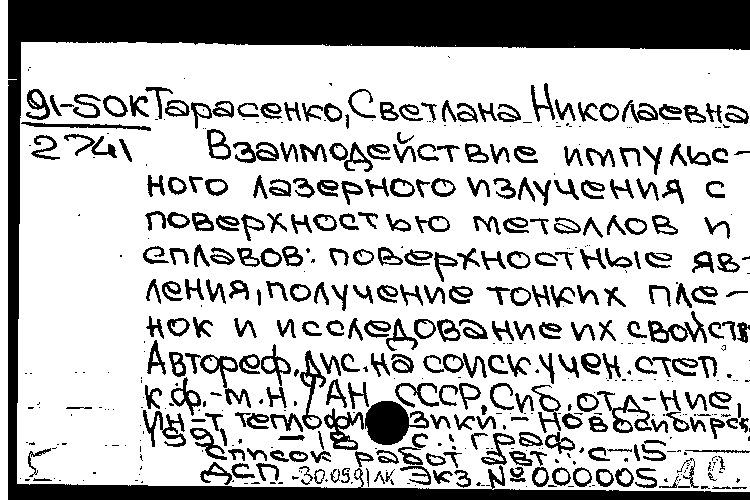 91-50К Тарасенко, Светлана Николаевна
2741 Взаимодействие импульс-
ного лазерного излучения с
поверхностью металлов и
сплавов: поверхностные яв-
ления, получение тонких пле-
нок и исследование их свойств
Автореф. дис. на соиск. учен. степ.
к.ф.-м.н. / АН СССР, Сиб. отд-ние,
Ин-т теплофизики. - Новосибирск,
1991. - 18 с.: граф.
Список работ авт.: с. 15
ДСП -30.09.91 ЛК Экз. № 000005. А С.